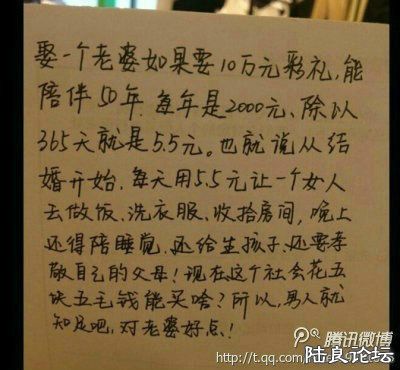 娶一个老婆如果要10万元彩礼,能
陪伴50年.每年是2000元、除以
365天就是5.5元。也就说从结
婚开始.每天用5.5元让一个女人
去做饭、洗衣服、收拾房间,晚上
还得陪睡觉.还给生孩子.还要孝
敬自己的父母!现在这个社会花五
块五毛钱能买啥?所以,男人就
知足吧,对老婆好点!
腾讯微博
http://t.qq.com/
陆良论坛